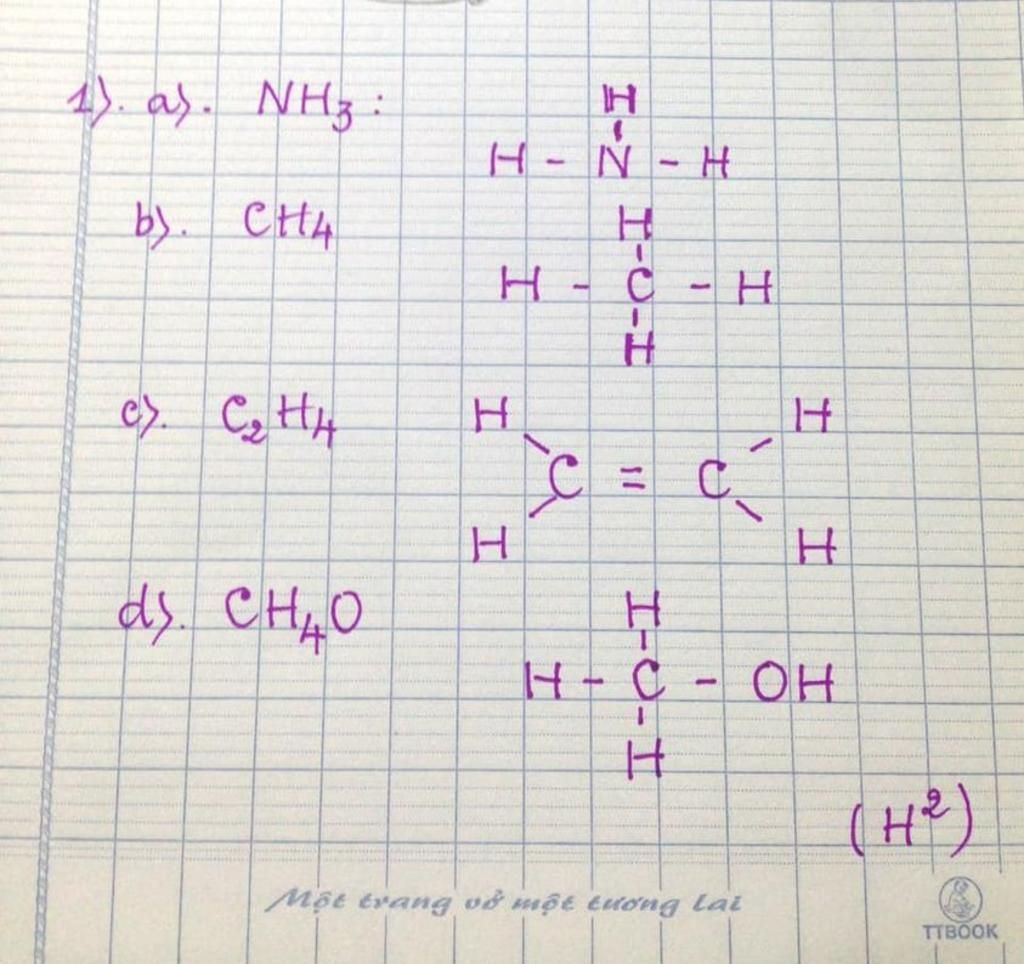 1). a). NH3:
H
H - N - H
b). CH4
H
H - C - H
H
c). C2H4
H H
C = C
H H
d). CH4O
H
H - C - OH
H
(H²)
Một trang vở một tương lai
TTBOOK